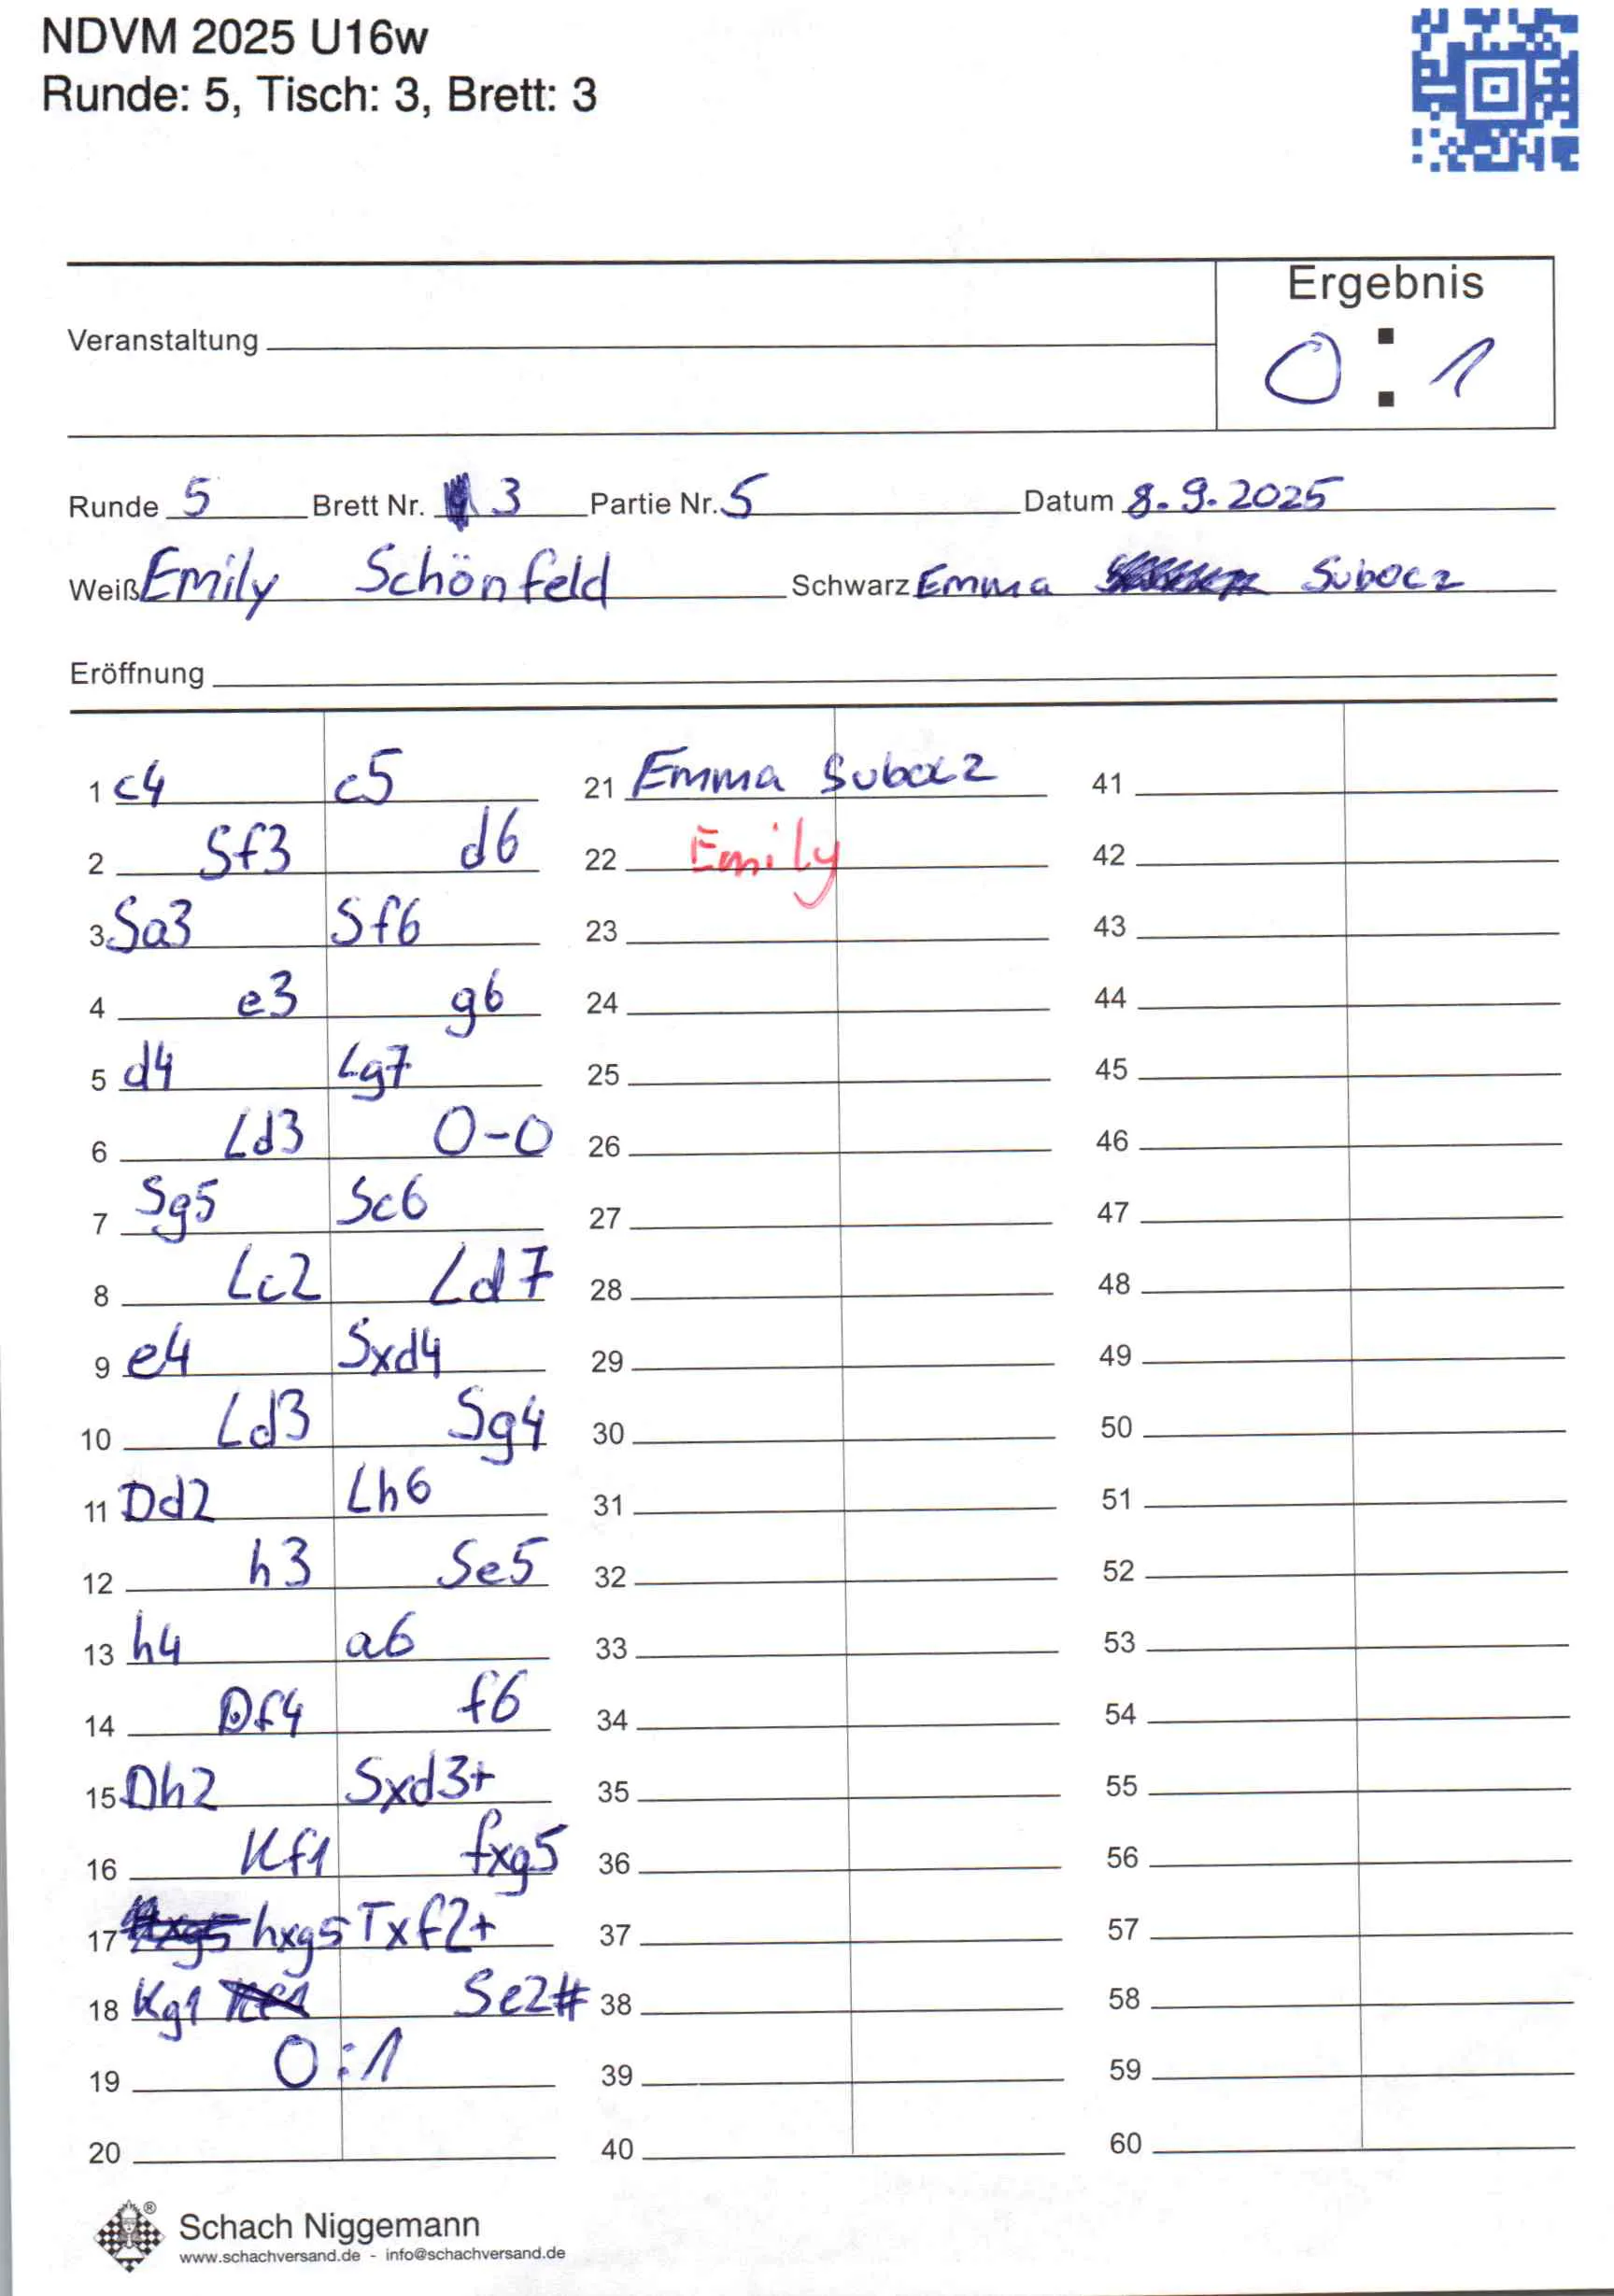 NDVM 2025 U16w
Runde: 5, Tisch: 3, Brett: 3
Ergebnis
Veranstaltung
0 : 1
Runde 5 Brett Nr. 3 Partie Nr. 5 Datum 8.9.2025
Weiß Emily Schönfeld Schwarz Emma Subocz
Eröffnung
1 c4 c5 21 Emma Subocz 41
2 Sf3 d6 22 Emily 42
3 Sa3 Sf6 23 43
4 e3 g6 24 44
5 d4 Lg7 25 45
6 Ld3 0-0 26 46
7 Sg5 Sc6 27 47
8 Lc2 Ld7 28 48
9 e4 Sxd4 29 49
10 Ld3 Sg4 30 50
11 Dd2 Lh6 31 51
12 h3 Se5 32 52
13 h4 a6 33 53
14 Df4 f6 34 54
15 Dh2 Sxd3+ 35 55
16 Kf1 fxg5 36 56
17 hxg5 Txf2+ 37 57
18 Kg1 Se2# 38 58
19 0:1 39 59
20 40 60
Schach Niggemann
www.schachversand.de - info@schachversand.de